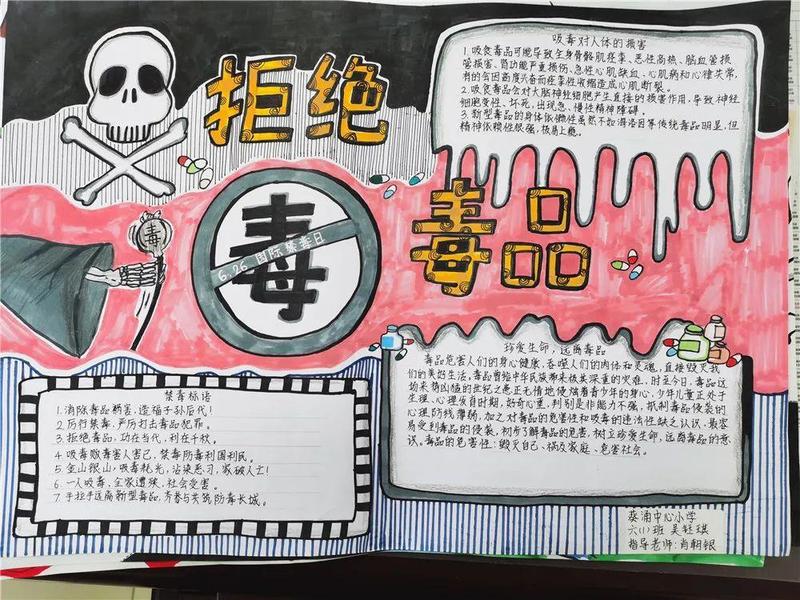 拒绝
毒品
毒
6.26 国际禁毒日
毒
吸毒对人体的损害
1.吸食毒品可能导致全身骨骼肌痉挛、恶性高热、脑血管损
管损害、肾功能严重损伤、急性心肌缺血、心肌病和心律失常,
有的会因高度兴奋而痉挛性收缩造成心肌断裂。
2.吸食毒品会对大脑神经细胞产生直接的损害作用,导致神经
细胞变性、坏死,出现急、慢性精神障碍。
3.新型毒品的身体依赖性虽然不如海洛因等传统毒品明显,但
精神依赖性很强,极易上瘾。
禁毒标语
1.消除毒品祸害,造福子孙后代!
2.厉行禁毒,严厉打击毒品犯罪。
3.拒绝毒品,功在当代,利在千秋。
4.吸毒贩毒害人害己,禁毒防毒利国利民。
5.金山银山,吸毒耗光,沾染恶习,家破人亡!
6.一人吸毒,全家遭殃,社会受害。
7.手拉手远离新型毒品,齐参与共筑防毒长城。
珍爱生命,远离毒品
毒品危害人们的身心健康,吞噬人们的肉体和灵魂,直接毁灭我
们的美好生活,毒品曾给中华民族带来极其深重的灾难,时至今日,毒品这
场来势凶猛的世纪之患正无情地侵蚀着青少年的身心,少年儿童正处于
生理、心理发育时期,好奇心重,判别是非能力不强,抵制毒品侵袭的
心理防线薄弱,加之对毒品的危害性和吸毒的违法性缺乏认识,最容
易受到毒品的侵袭,初步了解毒品的危害,树立珍爱生命,远离毒品的意
识。毒品的危害性:毁灭自己、祸及家庭、危害社会。
葵涌中心小学
六(1)班 吴钰琪
指导老师:肖朝银